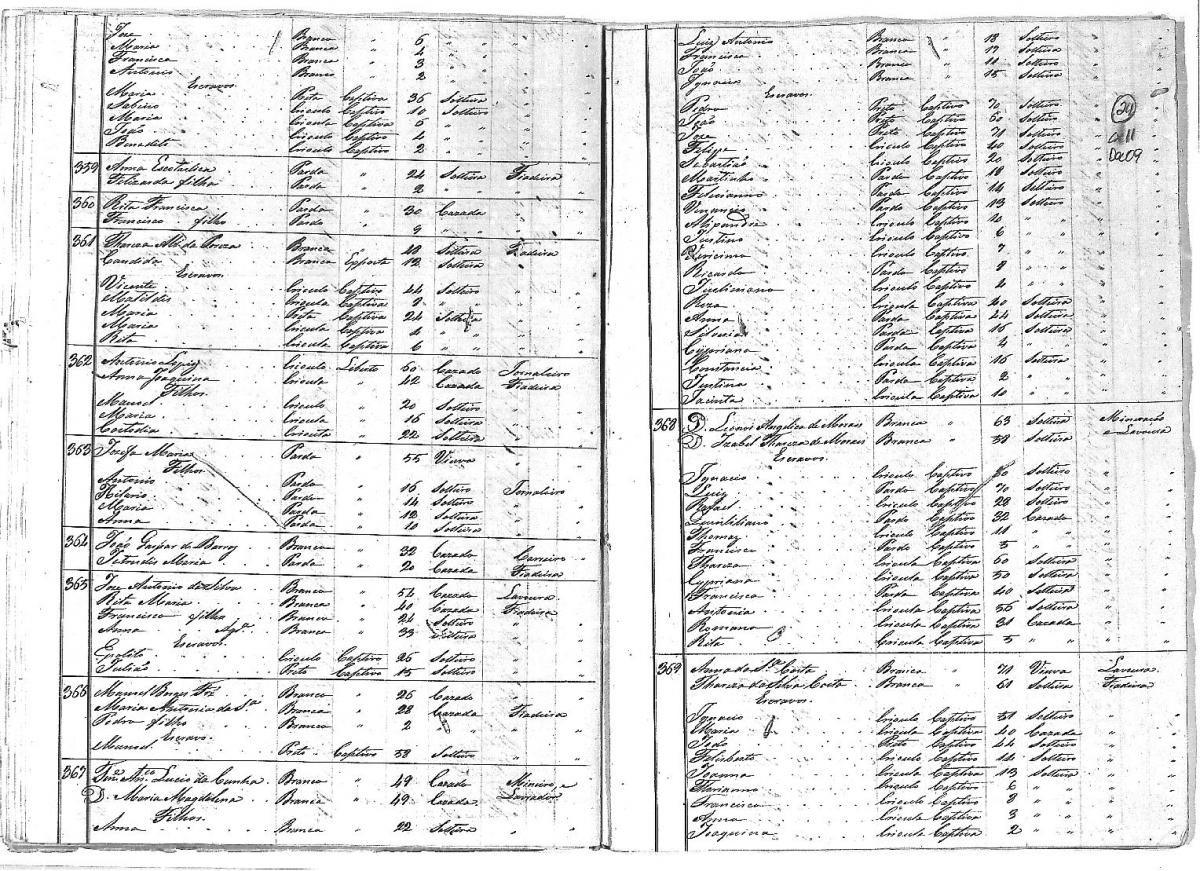 Joze Branco " 6 " "
Maria Branca " 4 " "
Francisca Branca " 3 " "
Antonio Branco " 2 " "
Escravos
Maria Preta Captiva 36 Solteira "
Sabino Crioulo Captivo 10 Solteiro "
Maria Crioula Captiva 5 " "
João Crioulo Captivo 4 " "
Benedito Crioulo Captivo 2 " "
359 Anna Escolastica Parda " 24 Solteira Fiadeira
Felizarda filha Parda " 2 " "
360 Rita Francisca Parda " 30 Cazada "
Francisco filho Pardo " 9 " "
361 Thareza Branca " 48 Solteira Fiadeira
Candida Branca Exposta 12 Solteira
Escravos
Vicente Crioulo Captivo 44 Solteiro "
Matildis Crioula Captiva 8 " "
Maria Preta Captiva 24 Solteira "
Maria Crioula Captiva 4 " "
Rita Crioula Captiva 6 " "
362 Antonio Crioulo Liberto 60 Cazado Jornaleiro
Anna Joaquina Crioula " 42 Cazada Fiadeira
Filhos
Manoel Crioulo " 20 Solteiro "
Maria Crioula " 16 Solteira "
Custodia Crioula " 22 Solteira "
363 Jozefa Maria Parda " 55 Viuva "
Filhos
Antonio Pardo " 16 Solteiro Jornaleiro
Hilario Pardo " 14 Solteiro "
Maria Parda " 12 Solteira "
Anna Parda " 10 Solteira "
364 João Gaspar de Barros Branco " 32 Cazado Carreiro
Getrudis Maria Parda " 20 Cazada Fiadeira
365 Joze Antonio da Silva Branco " 54 Cazado Lavoura
Rita Maria Branca " 40 Cazada Fiadeira
Francisco filho Branco " 24 Solteiro "
Anna Agª Branca " 33 Solteira "
Escravos
Epolito Crioulo Captivo 26 Solteiro "
Julião Preto Captivo 15 Solteiro "
366 Manoel Branco " 26 Cazado "
Maria Antonia da Sª Branca " 28 Cazada Fiadeira
Pedro filho Branco " 2 " "
Escravo
Manoel Preto Captivo 58 Solteiro "
367 Lucio da Cunha Branco " 49 Cazado Mineiro e
D. Maria Magdalena Branca " 49 Cazada Lavrador
Filhos
Anna Branca " 22 Solteira " "
Luiz Antonio Branco " 18 Solteiro " "
Francisca Branca " 17 Solteira " "
João Branco " 11 Solteiro " "
Ignacio Branco " 15 Solteiro " "
Escravos
Pedro Preto Captivo 70 Solteiro "
João Preto Captivo 60 Solteiro "
Joze Preto Captivo 71 Solteiro "
Felipe Crioulo Captivo 40 Solteiro "
Sebastião Crioulo Captivo 20 Solteiro "
Martinho Pardo Captivo 18 Solteiro "
Feliciano Pardo Captivo 14 Solteiro "
Venancio Pardo Captivo 13 Solteiro "
Crioulo Captivo 10 " "
Justino Crioulo Captivo 6 " "
Crioulo Captivo 7 " "
Ricardo Pardo Captivo 8 " "
Justiniano Crioulo Captivo 4 " "
Roza Crioula Captiva 20 Solteira "
Anna Parda Captiva 44 Solteira "
Parda Captiva 16 Solteira "
Cypriana Parda Captiva 4 " "
Constancia Crioula Captiva 16 Solteira "
Justina Parda Captiva 2 " "
Jacinta Crioula Captiva 10 " "
24
Cx 11
Doc 09
368 D. Leonor Angelica de Morais Branca " 63 Solteira Mineração
D. Izabel Thareza de Morais Branca " 58 Solteira e Lavoura
Escravos
Ignacio Crioulo Captivo 80 Solteiro "
Luiz Pardo Captivo 70 Solteiro "
Rafael Crioulo Captivo 28 Solteiro "
Quintiliano Pardo Captivo 32 Cazado "
Thomaz Crioulo Captivo 11 " "
Francisco Pardo Captivo 5 " "
Thareza Crioula Captiva 60 Solteira "
Cypriana Crioula Captiva 50 Solteira "
Francisca Parda Captiva 40 Solteira "
Antonia Crioula Captiva 56 Solteira "
Romana Crioula Captiva 31 Cazada "
Rita Crioula Captiva 5 " "
369 Anna da Sª Costa Branca " 71 Viuva Lavoura
Thareza da Silva Costa Branca " 61 Solteira Fiadeira
Escravos
Ignacio Crioulo Captivo 51 Solteiro "
Maria Crioula Captiva 40 Cazada "
João Preto Captivo 44 Solteiro "
Felisberto Crioulo Captivo 14 Solteiro "
Joanna Crioula Captiva 13 Solteira "
Marianno Crioulo Captivo 6 " "
Francisco Crioulo Captivo 8 " "
Anna Crioula Captiva 3 " "
Joaquina Crioula Captiva 2 " "